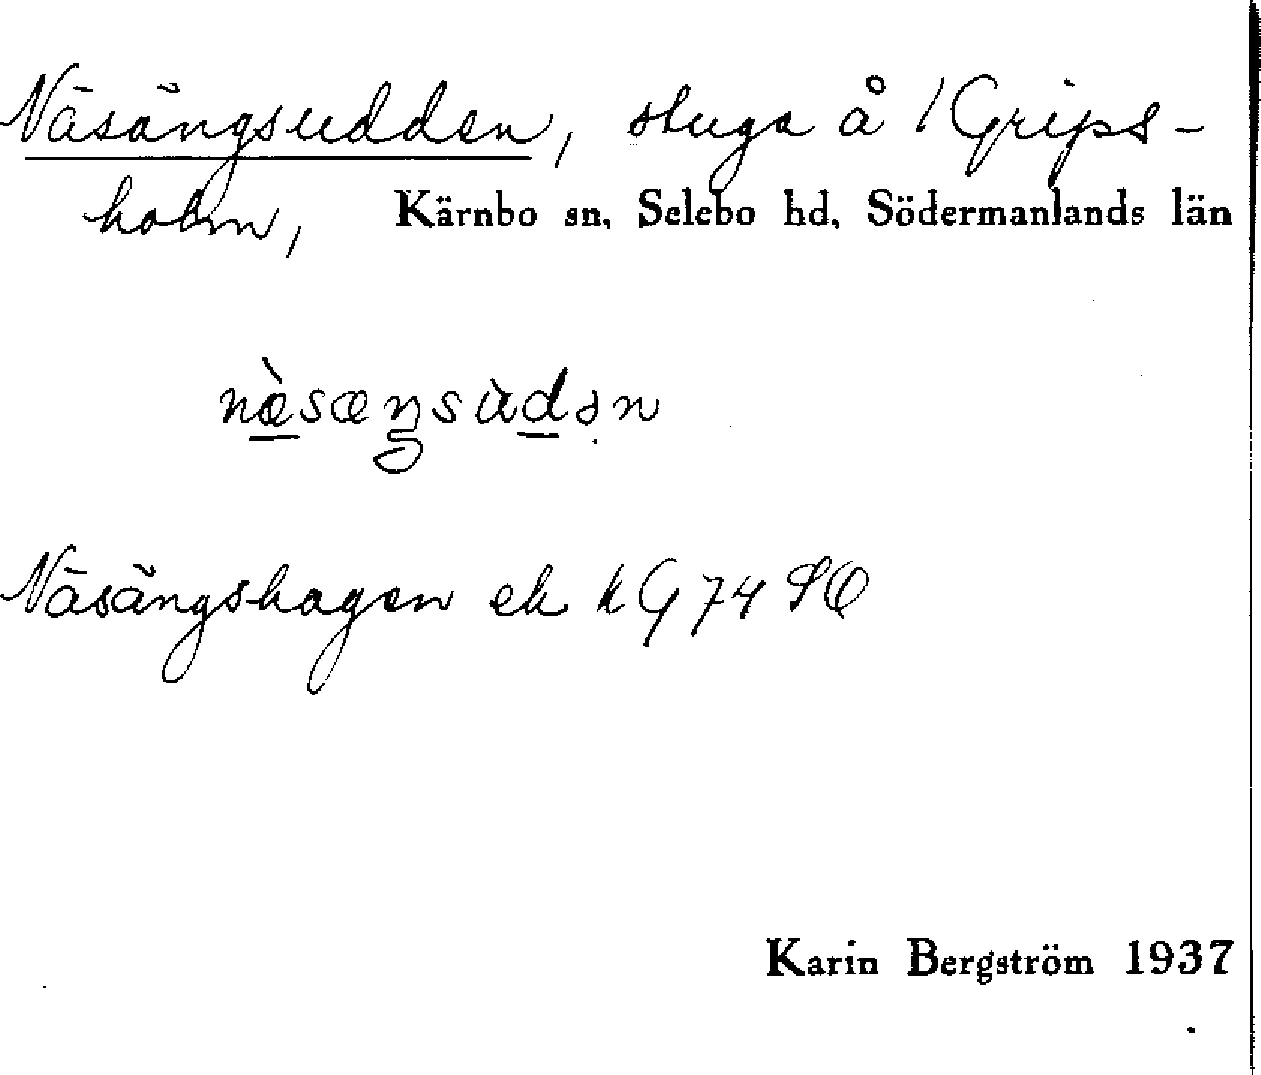 Näsängsudden, stuga å 1 Grips-
holm, Kärnbo sn, Selebo hd, Södermanlands län
næ̀sæŋsùdən
Näsängshagen ek k G 74 SO
Karin Bergström 1937